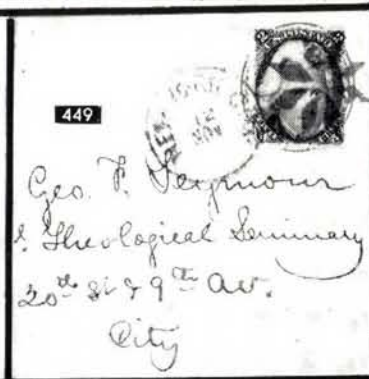 449
12
NOV
Geo. F. Seymour
Theological Seminary
20th St & 9th Av.
City